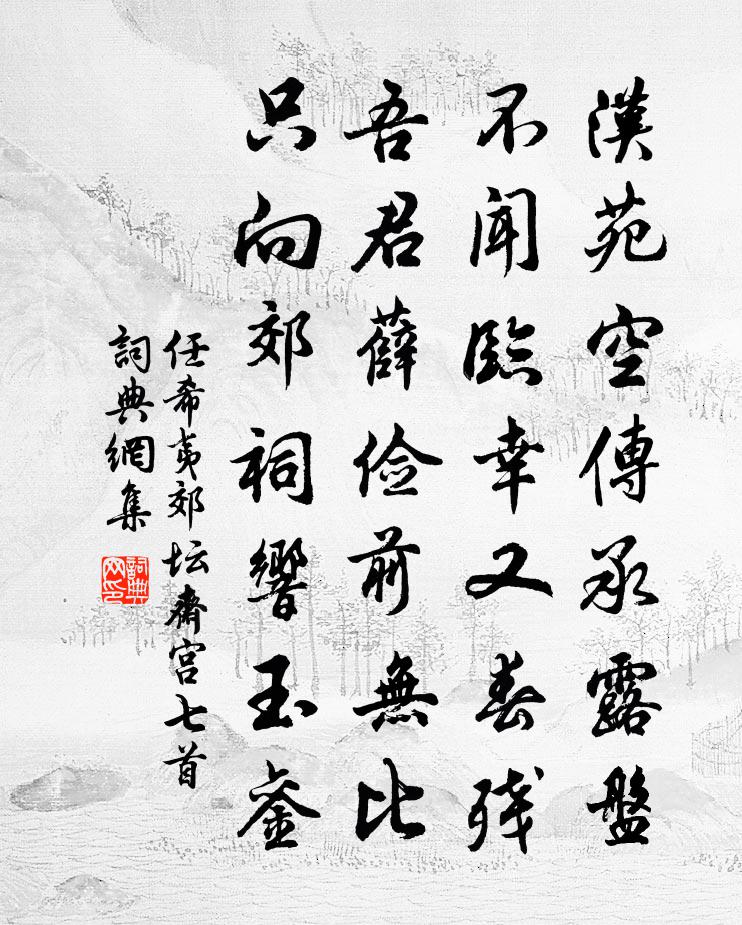 漢苑空傳承露盤
不聞臨幸又春残
吾君薛俭前無比
只向郊祠響玉銮
任希夷郊坛齋宫七首
詞典網集
詞典网印